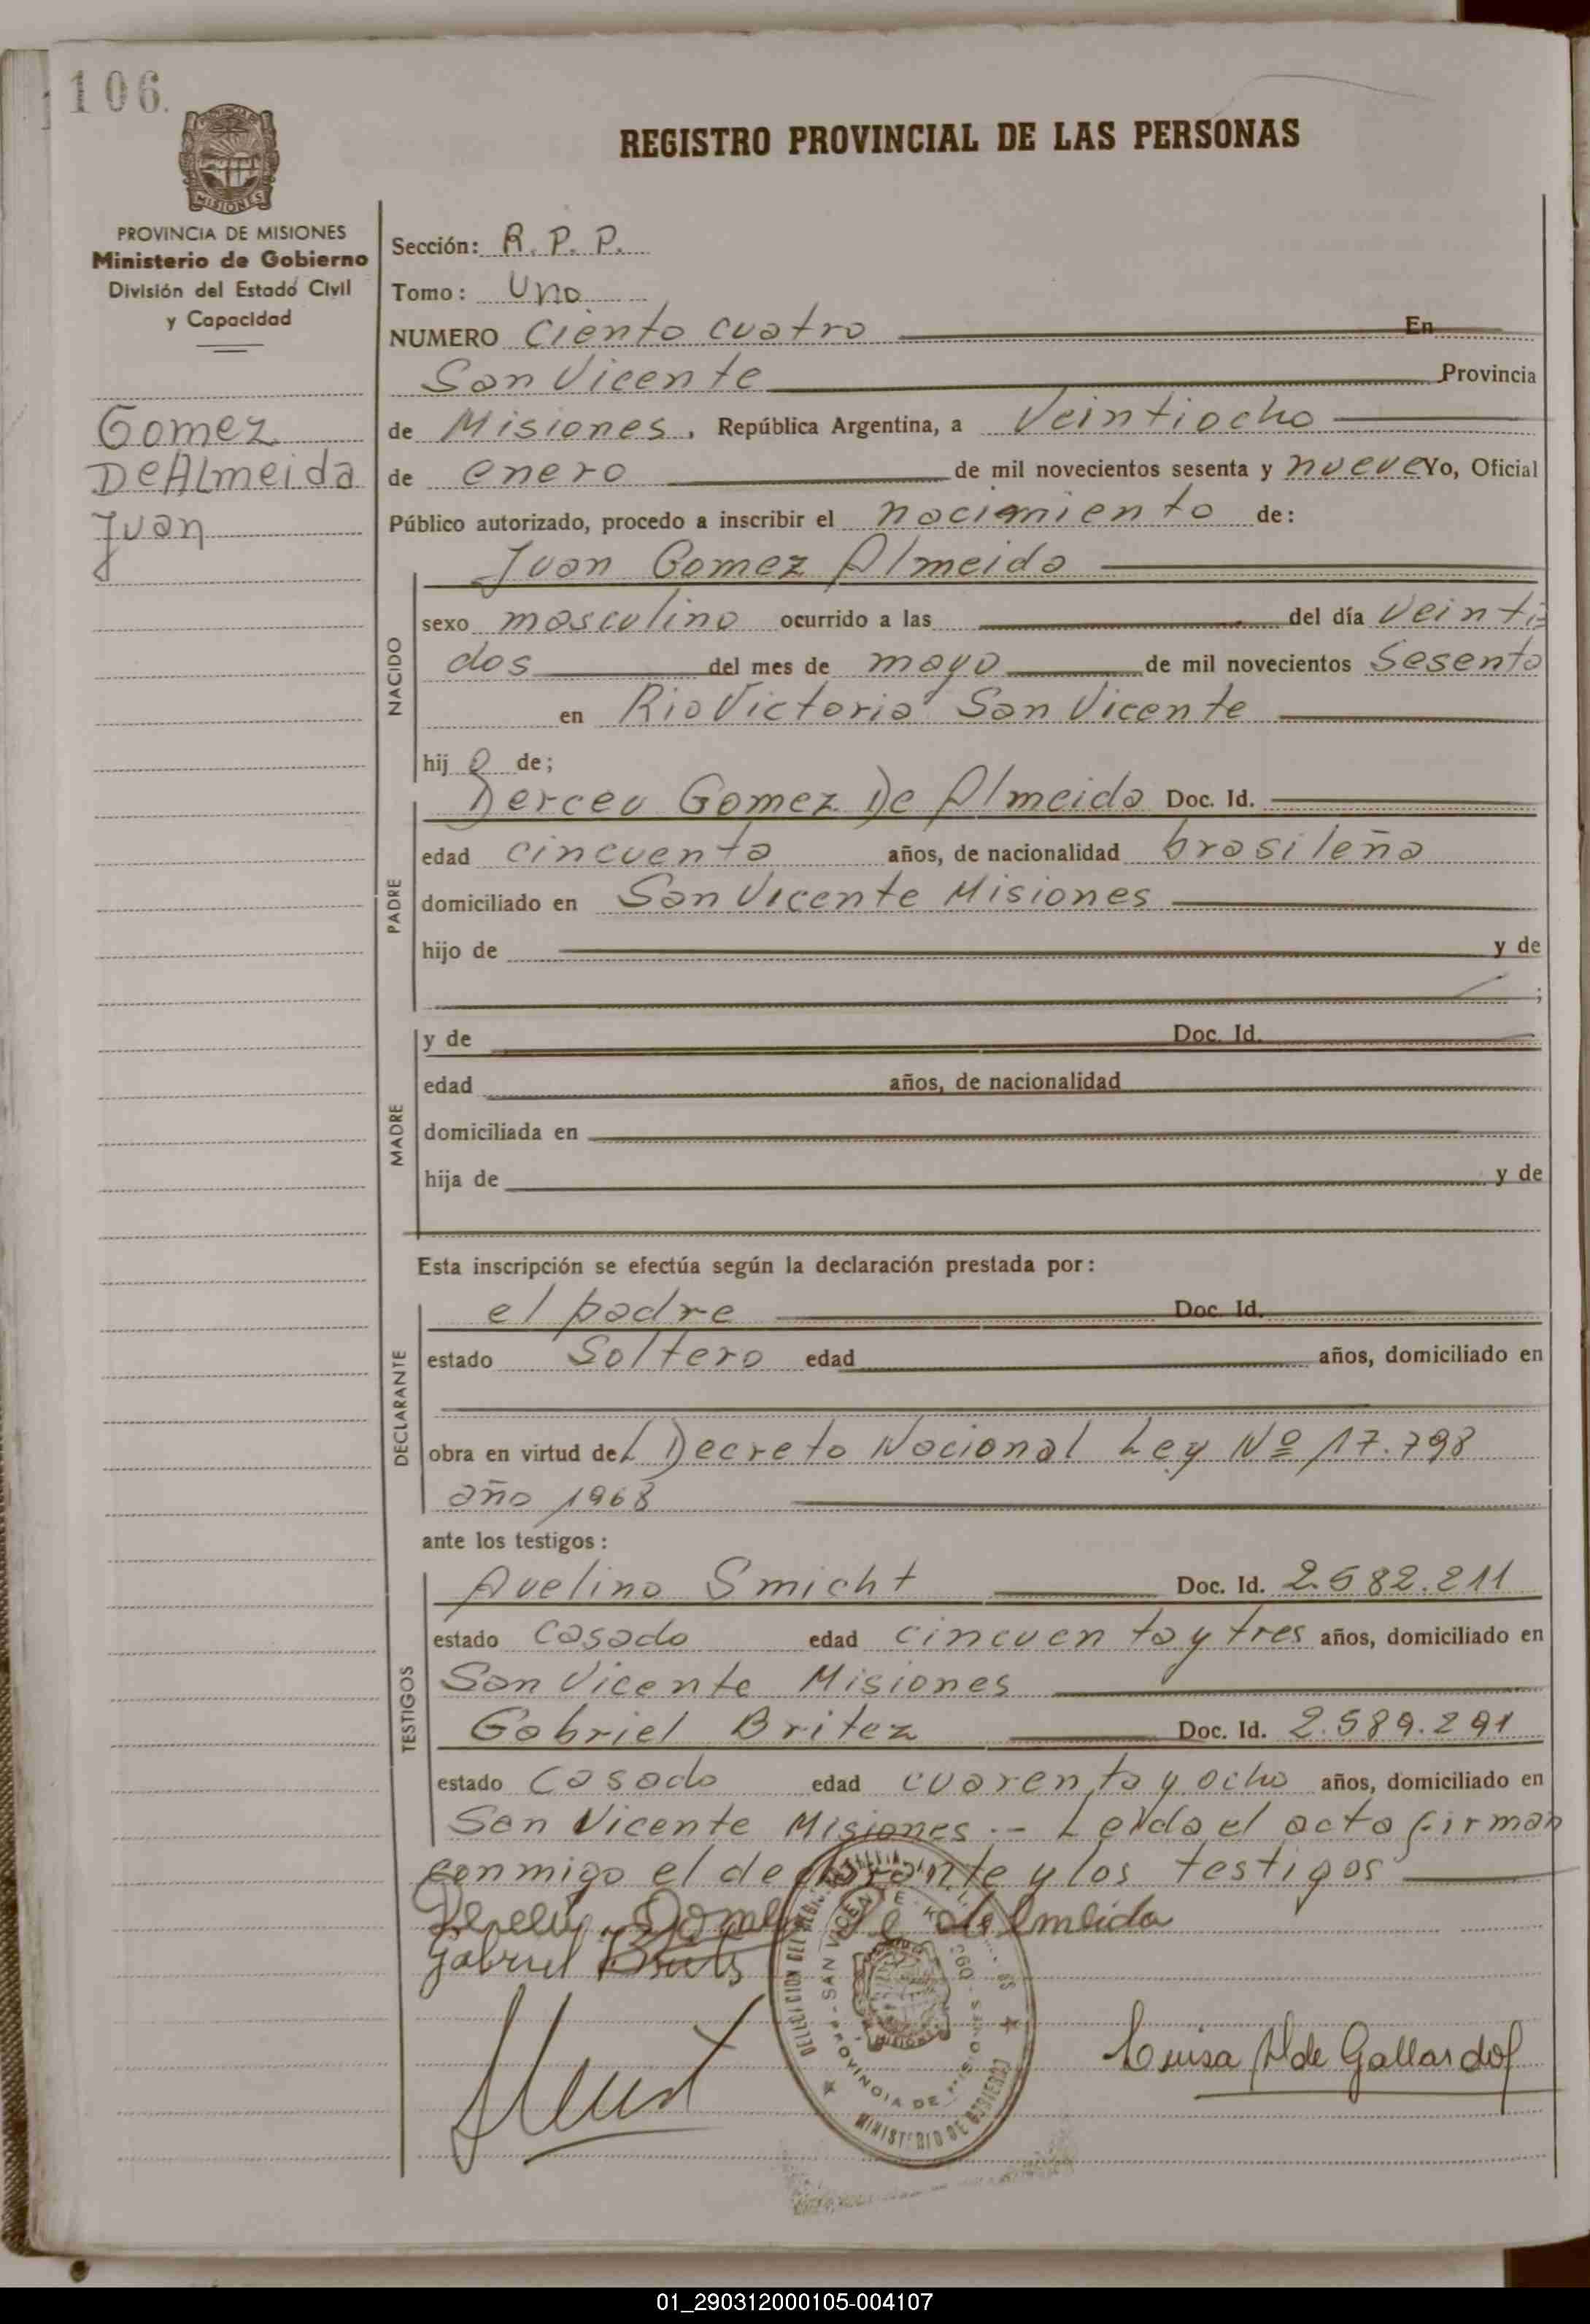 106.
REGISTRO PROVINCIAL DE LAS PERSONAS
MISIONES
PROVINCIA DE MISIONES
Ministerio de Gobierno
División del Estado Civil
y Capacidad
Gomez
De Almeida
Juan
Sección: R. P. P.
Tomo: Uno
NUMERO Ciento cuatro En
San Vicente Provincia
de Misiones, República Argentina, a Veintiocho
de enero de mil novecientos sesenta y nueve Yo, Oficial
Público autorizado, procedo a inscribir el nacimiento de:
NACIDO
Juan Gomez Almeida
sexo masculino ocurrido a las del día Veinti
dos del mes de mayo de mil novecientos Sesenta
en Rio Victoria San Vicente
hijo de;
PADRE
Derceu Gomez De Almeida Doc. Id.
edad cincuenta años, de nacionalidad brasileña
domiciliado en San Vicente Misiones
hijo de y de
;
MADRE
y de Doc. Id.
edad años, de nacionalidad
domiciliada en
hija de y de
Esta inscripción se efectúa según la declaración prestada por:
DECLARANTE
el padre Doc. Id.
estado Soltero edad años, domiciliado en
obra en virtud del Decreto Nacional Ley Nº 17.798
año 1968
ante los testigos:
TESTIGOS
Avelino Smicht Doc. Id. 2.582.211
estado Casado edad cincuenta y tres años, domiciliado en
San Vicente Misiones
Gabriel Britez Doc. Id. 2.589.291
estado Casado edad cuarenta y ocho años, domiciliado en
San Vicente Misiones .- Leida el acta firman
conmigo el declarante y los testigos
Derceu Gomez De Almeida
Gabriel Britez
Luisa de Gallardo
SAN VICENTE
PROVINCIA DE MISIONES
MINISTERIO DE GOBIERNO
01_290312000105-004107